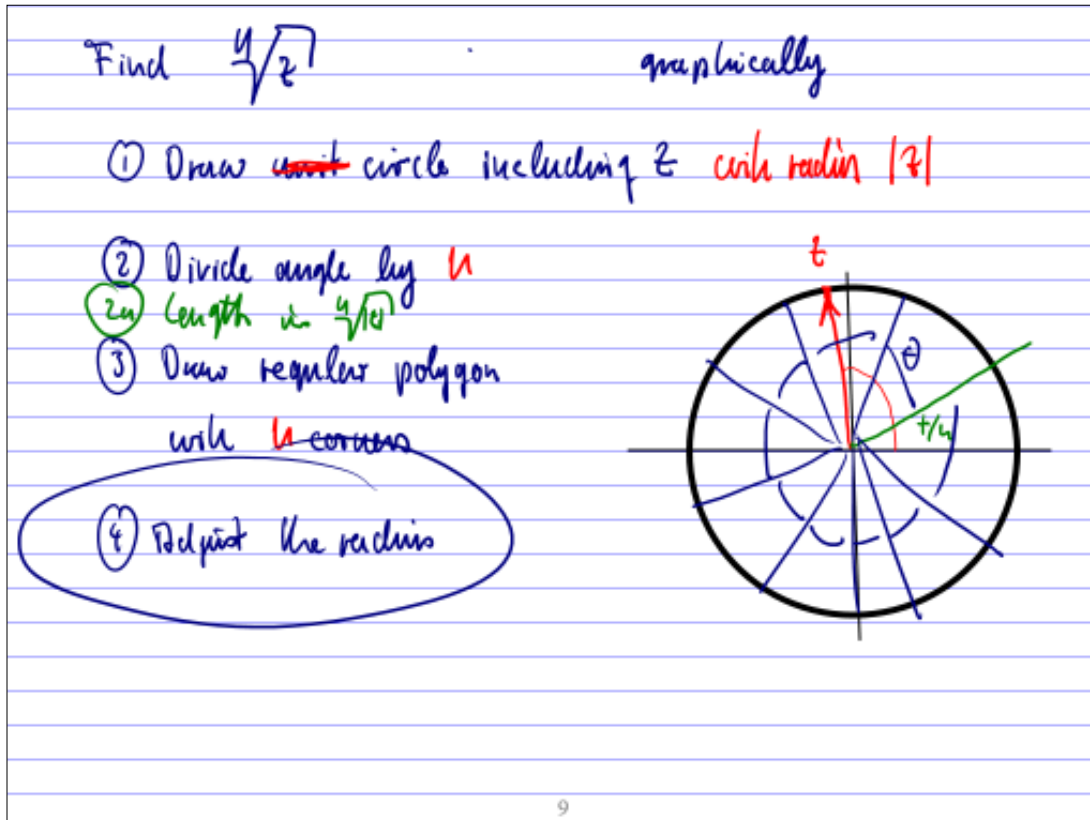 Find ⁿ√z graphically
① Draw unit circle including z with radius |z|
② Divide angle by n
2a length is ⁿ√|z|
③ Draw regular polygon
with n corners
④ Adjust the radius
z
θ
9